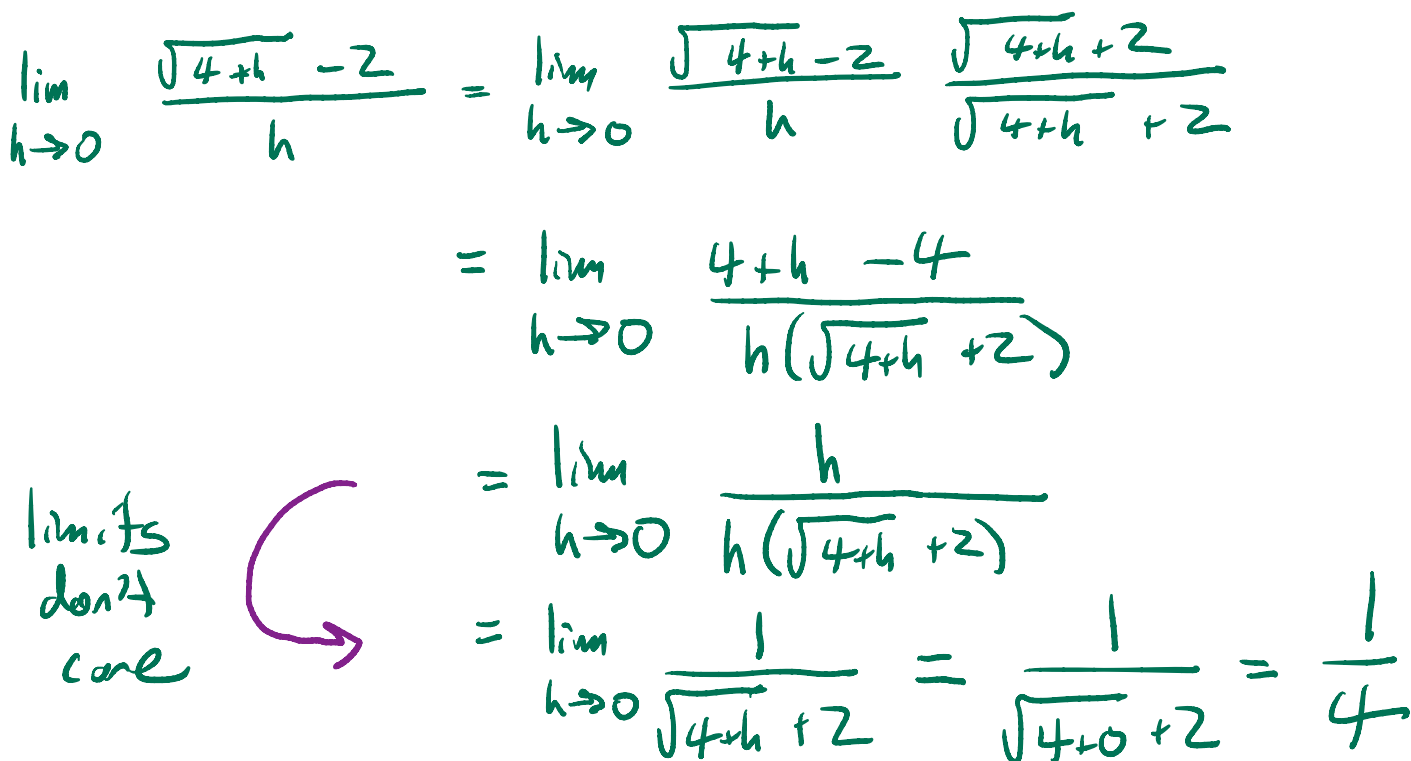 lim h→0 (√(4+h) - 2)/h = lim h→0 (√(4+h) - 2)/h (√(4+h) + 2)/(√(4+h) + 2)
= lim h→0 (4+h - 4)/(h(√(4+h) + 2))
= lim h→0 h/(h(√(4+h) + 2))
limits
don't
care
= lim h→0 1/(√(4+h) + 2) = 1/(√(4+0) + 2) = 1/4